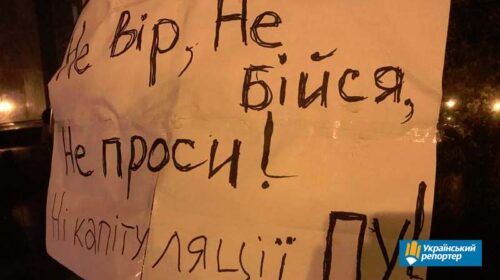 Не вір, Не
бійся,
Не проси!
Ні капіту ляції ПУ!
Український
репортер